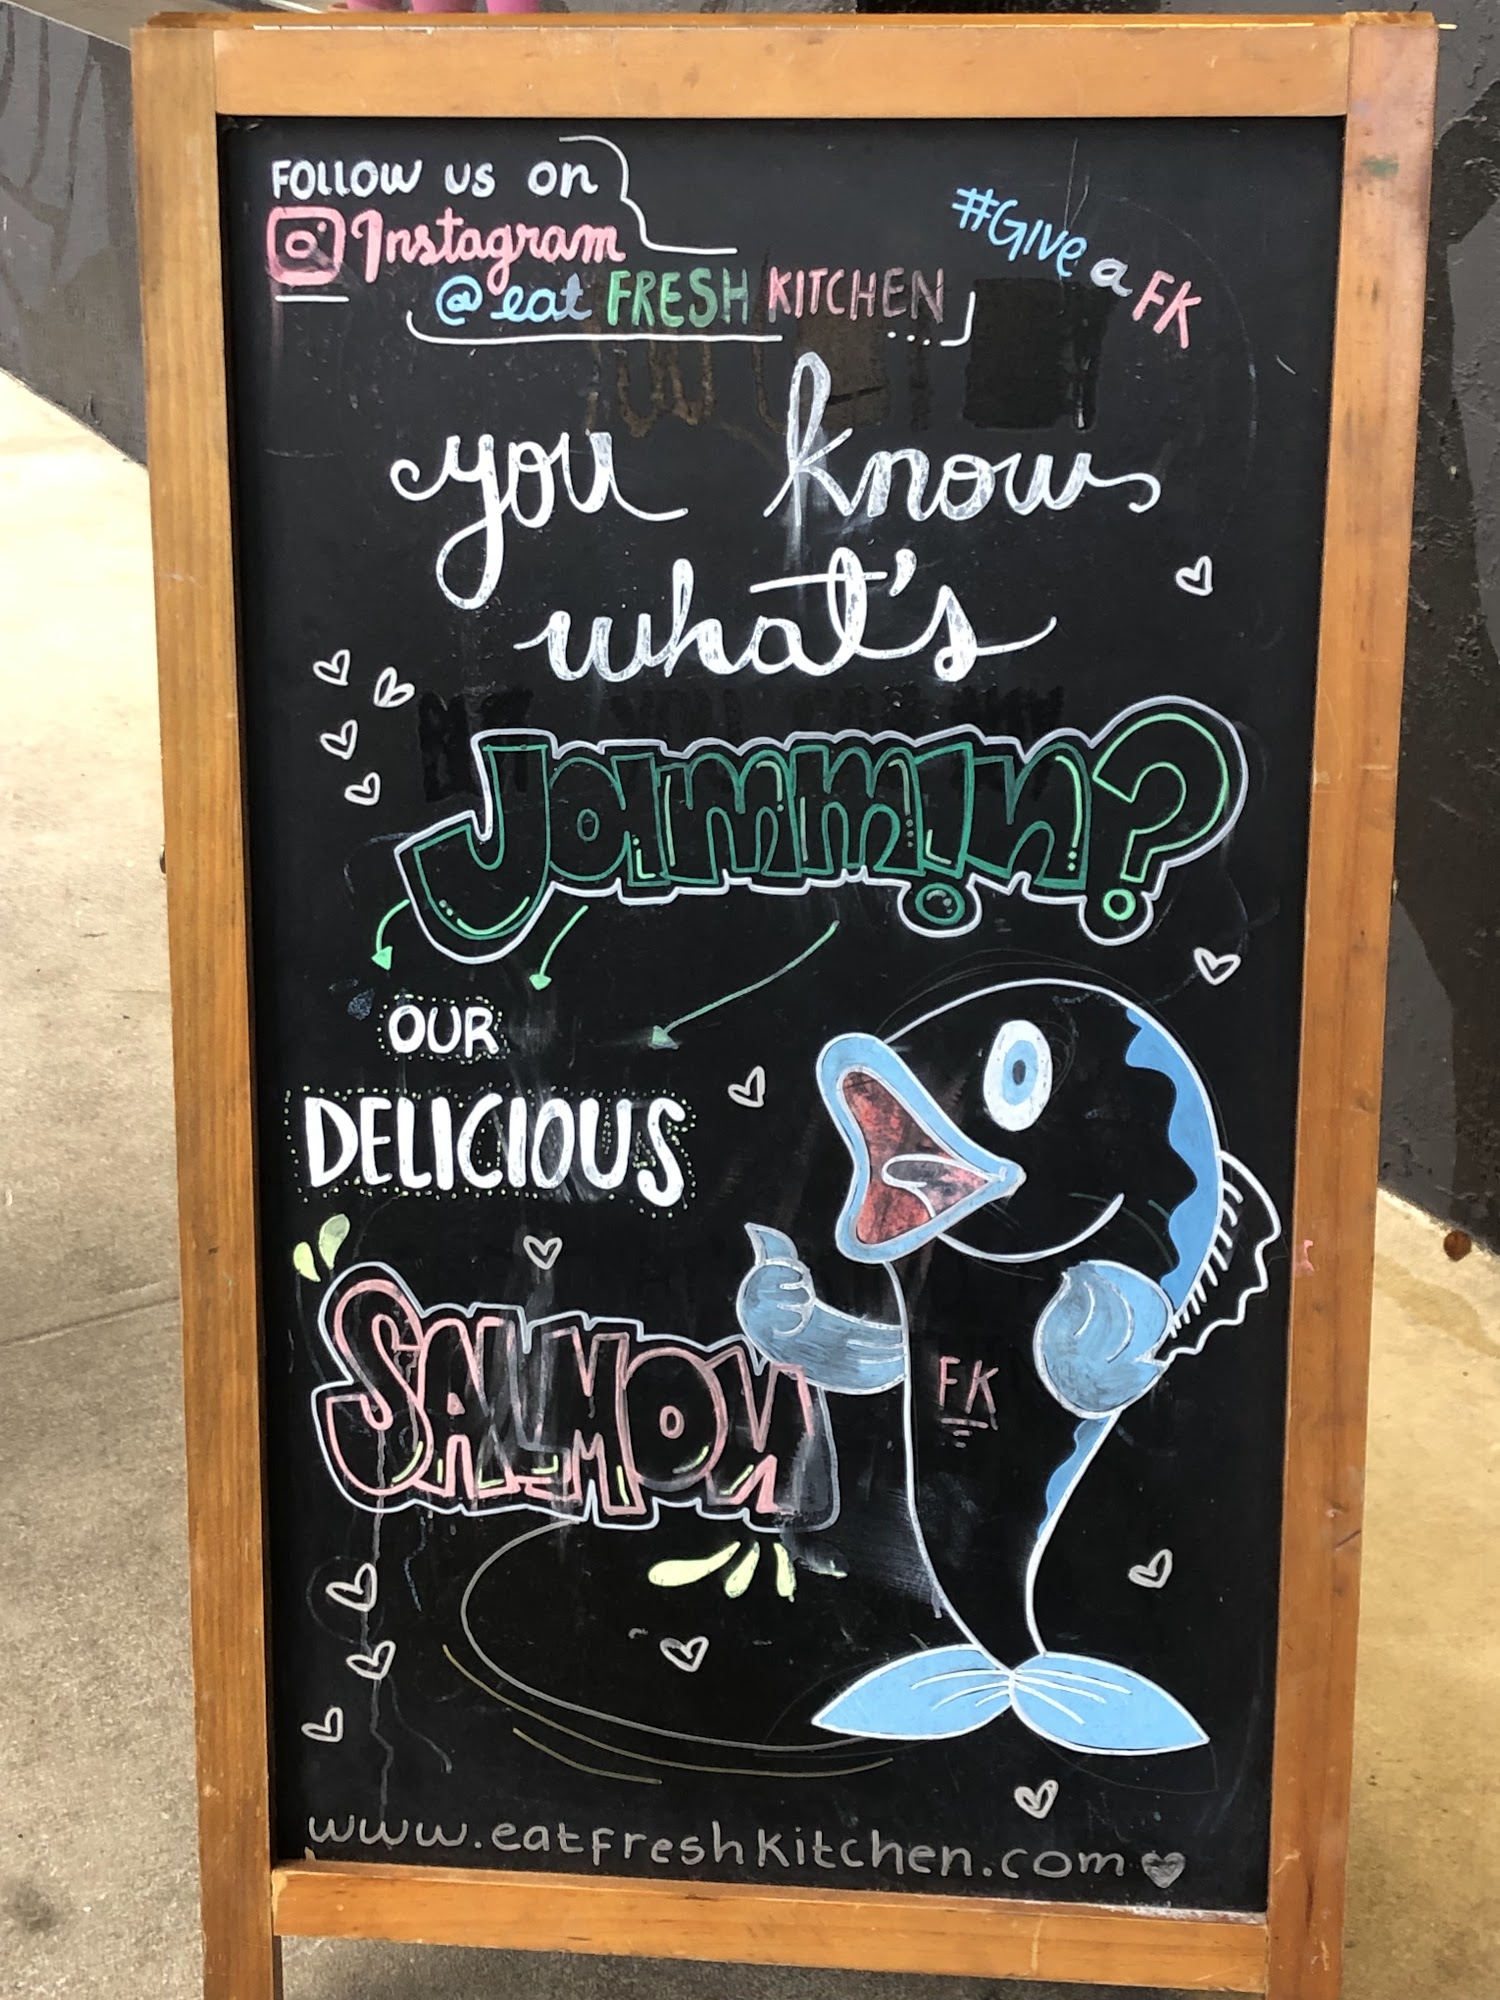 FOLLOW US on
Instagram
@eat FRESH KITCHEN
#GIVE a FK
you know
what's
Jammin?
OUR
DELICIOUS
SALMON
FK
www.eatfreshkitchen.com